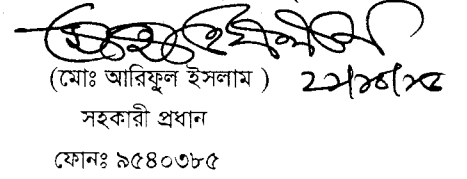 (মোঃ আরিফুল ইসলাম )
সহকারী প্রধান
ফোনঃ ৯৫৪০৩৮৫